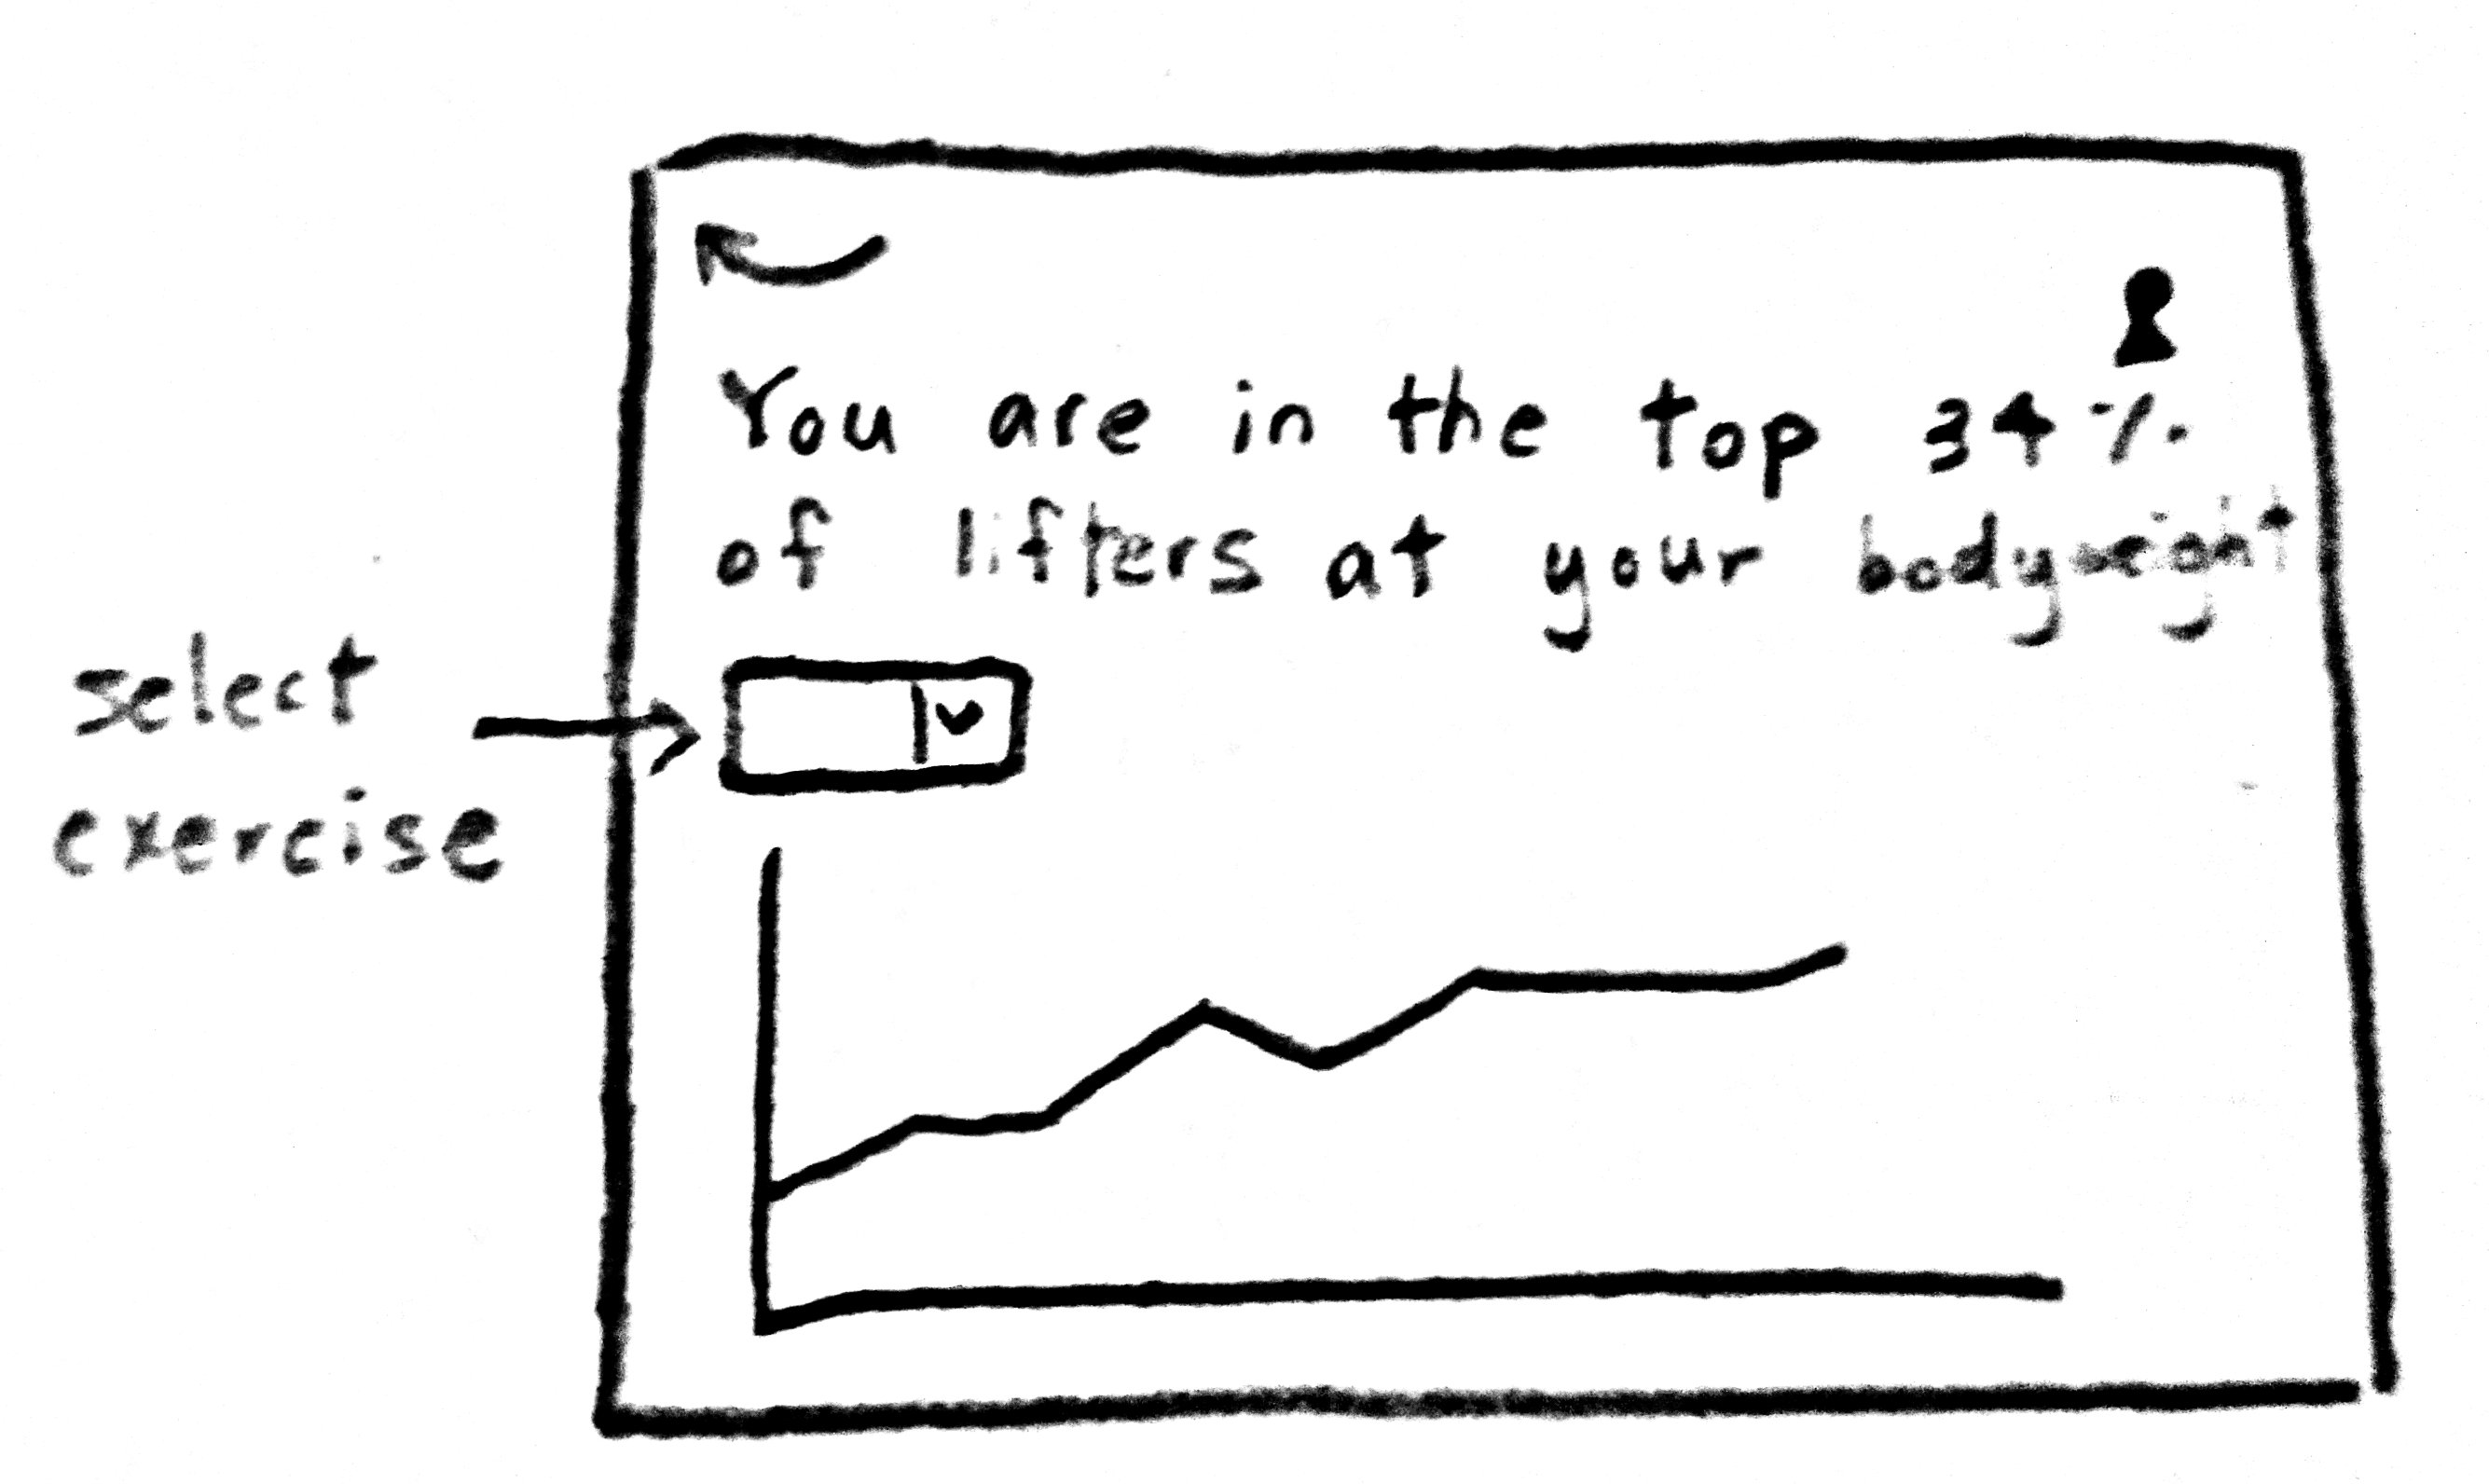 You are in the top 34%
of lifters at your bodyweight
select
exercise